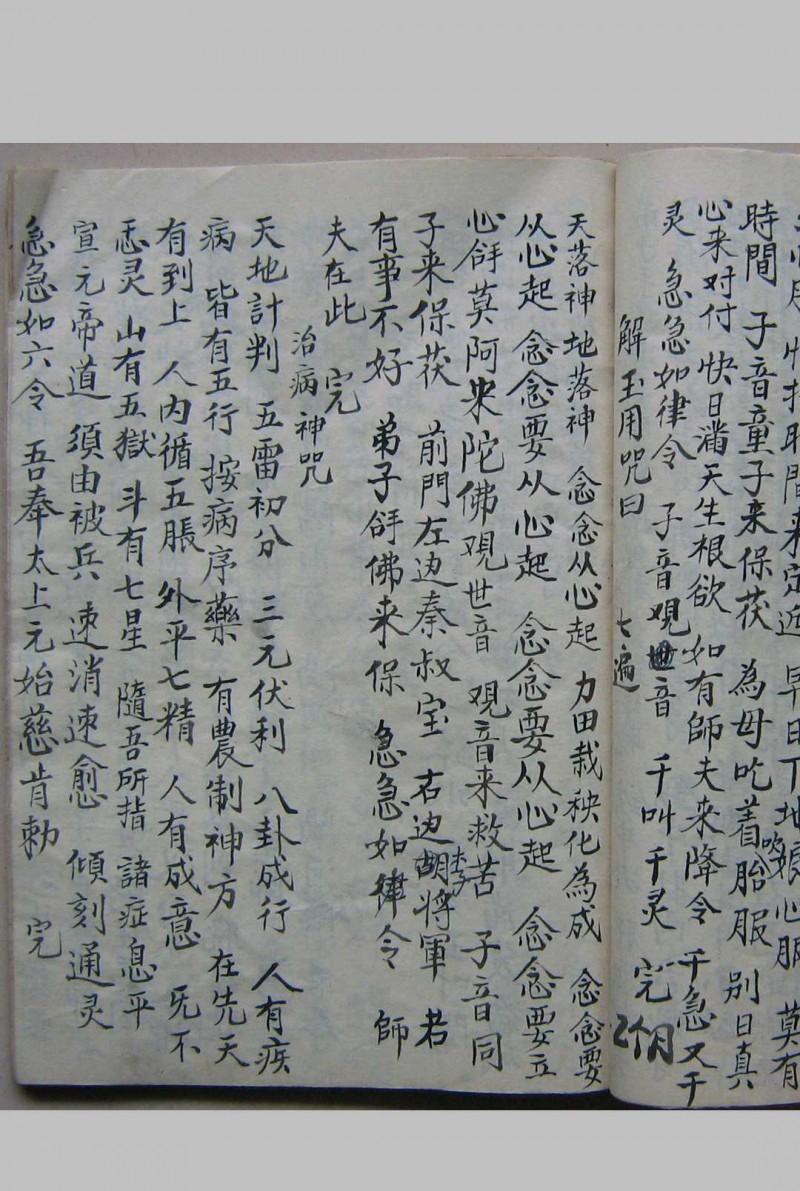 時間　子音童子来保茯　為母吃着胎服　别日真
心来对付　快日满天生根欲　如有師夫来降令　千急又千
灵　急急如律令　子音观世音　千叫千灵　完
解玉用咒曰　七遍
天落神　地落神　念念从心起　力田栽秧化為成　念念要
从心起　念念要从心起　念念要从心起　念念要立
心　莫阿来陀佛观世音　观音来救苦　子音同
子来保茯　前門左边秦叔宝　右边胡将軍　若
有事不好　弟子　佛来保　急急如律令　師
夫在此　完
治病神咒
天地計判　五雷初分　三元伏利　八卦成行　人有疾
病　皆有五行　按病序藥　有農制神方　在先天
有到上　人内循五脹　外平七精　人有成意　旡不
灵　山有五獄　斗有七星　隨吾所指　諸症息平
宣元帝道　須由被兵　速消速愈　傾刻通灵
急急如六令　吾奉太上元始慈肯勅　完